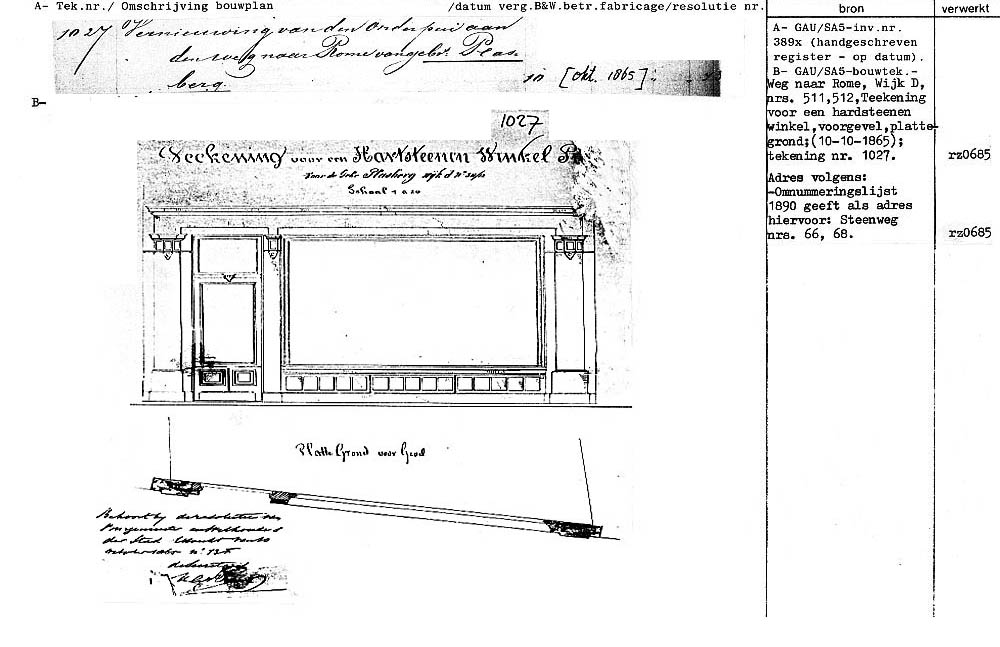 A- Tek.nr./ Omschrijving bouwplan /datum verg.B&W.betr.fabricage/resolutie nr.
bron
verwerkt
1027 Vernieuwing van den Onderpui aan
den weg naar Rome van gebr. Plas-
berg.
10 [okt. 1865]
B-
1027
Teekening voor een Hartsteenen Winkel
voor de Gebr
Schaal 1 a 20
Platte Grond voor Gevel
Behoort bij de resolutie van
Burgemeester en Wethouders
der Stad Utrecht
A- GAU/SA5-inv.nr.
389x (handgeschreven
register - op datum).
B- GAU/SA5-bouwtek.-
Weg naar Rome, Wijk D,
nrs. 511,512,Teekening
voor een hardsteenen
winkel,voorgevel,platte-
grond;(10-10-1865);
tekening nr. 1027.
rz0685
Adres volgens:
-Omnummeringslijst
1890 geeft als adres
hiervoor: Steenweg
nrs. 66, 68.
rz0685